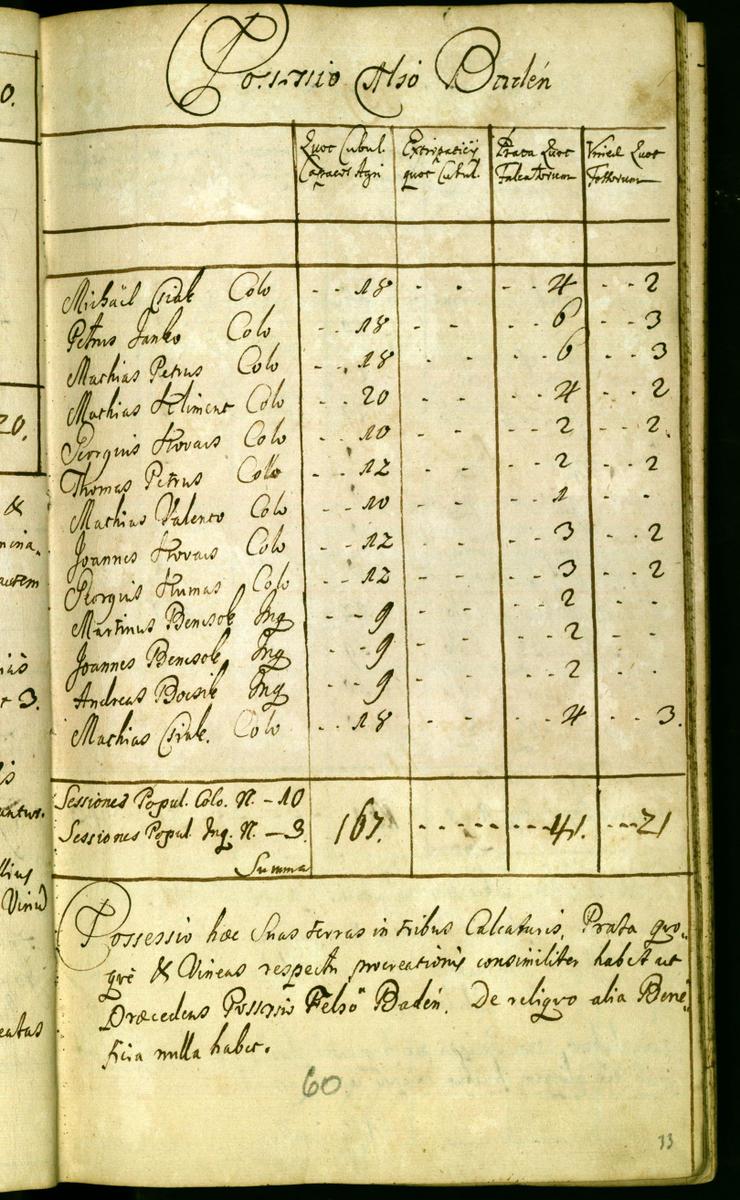 Possessio Alsó Badén
Quot Cubul. Extirpaticÿ Prata Quot Vineæ Quot
Capaces Agri quot Cubul. Falcatorum Fossorum
Michäel Csiak Colo - - 18 - - - - 4 - - 2
Petrus Janko Colo - - 18 - - - - 6 - - 3
Mathias Petrus Colo - - 18 - - - - 6 - - 3
Mathias Kliment Colo - - 20 - - - - 4 - - 2
Georgius Kovacs Colo - - 10 - - - - 2 - - 2
Thomas Petrus Colo - - 12 - - - - 2 - - 2
Mathias Valento Colo - - 10 - - - - 1 - -
Joannes Kovacs Colo - - 12 - - - - 3 - - 2
Georgius Humas Colo - - 12 - - - - 3 - - 2
Martinus Bencsok Inq - - 9 - - - - 2 - -
Joannes Bencsok Inq - - 9 - - - - 2 - -
Andreas Bocsik Inq - - 9 - - - - 2 - -
Mathias Csiak. Colo - - 18 - - - - 4 - - 3.
Sessiones Popul. Colo. N. - 10
Sessiones Popul. Inq. N. - 3. 167. - - - - - - - 41. - - - 21
Summa
Possessio hæc Suas terras in tribus Calcaturis, Prata quo,,
què & Vineas respectu procreationis consimiliter habet ut
Præcedens Possessio Felsö Badén. De reliquo alia Bene,,
ficia nulla habet.
60
33
20.
&
ntur.
Vinid